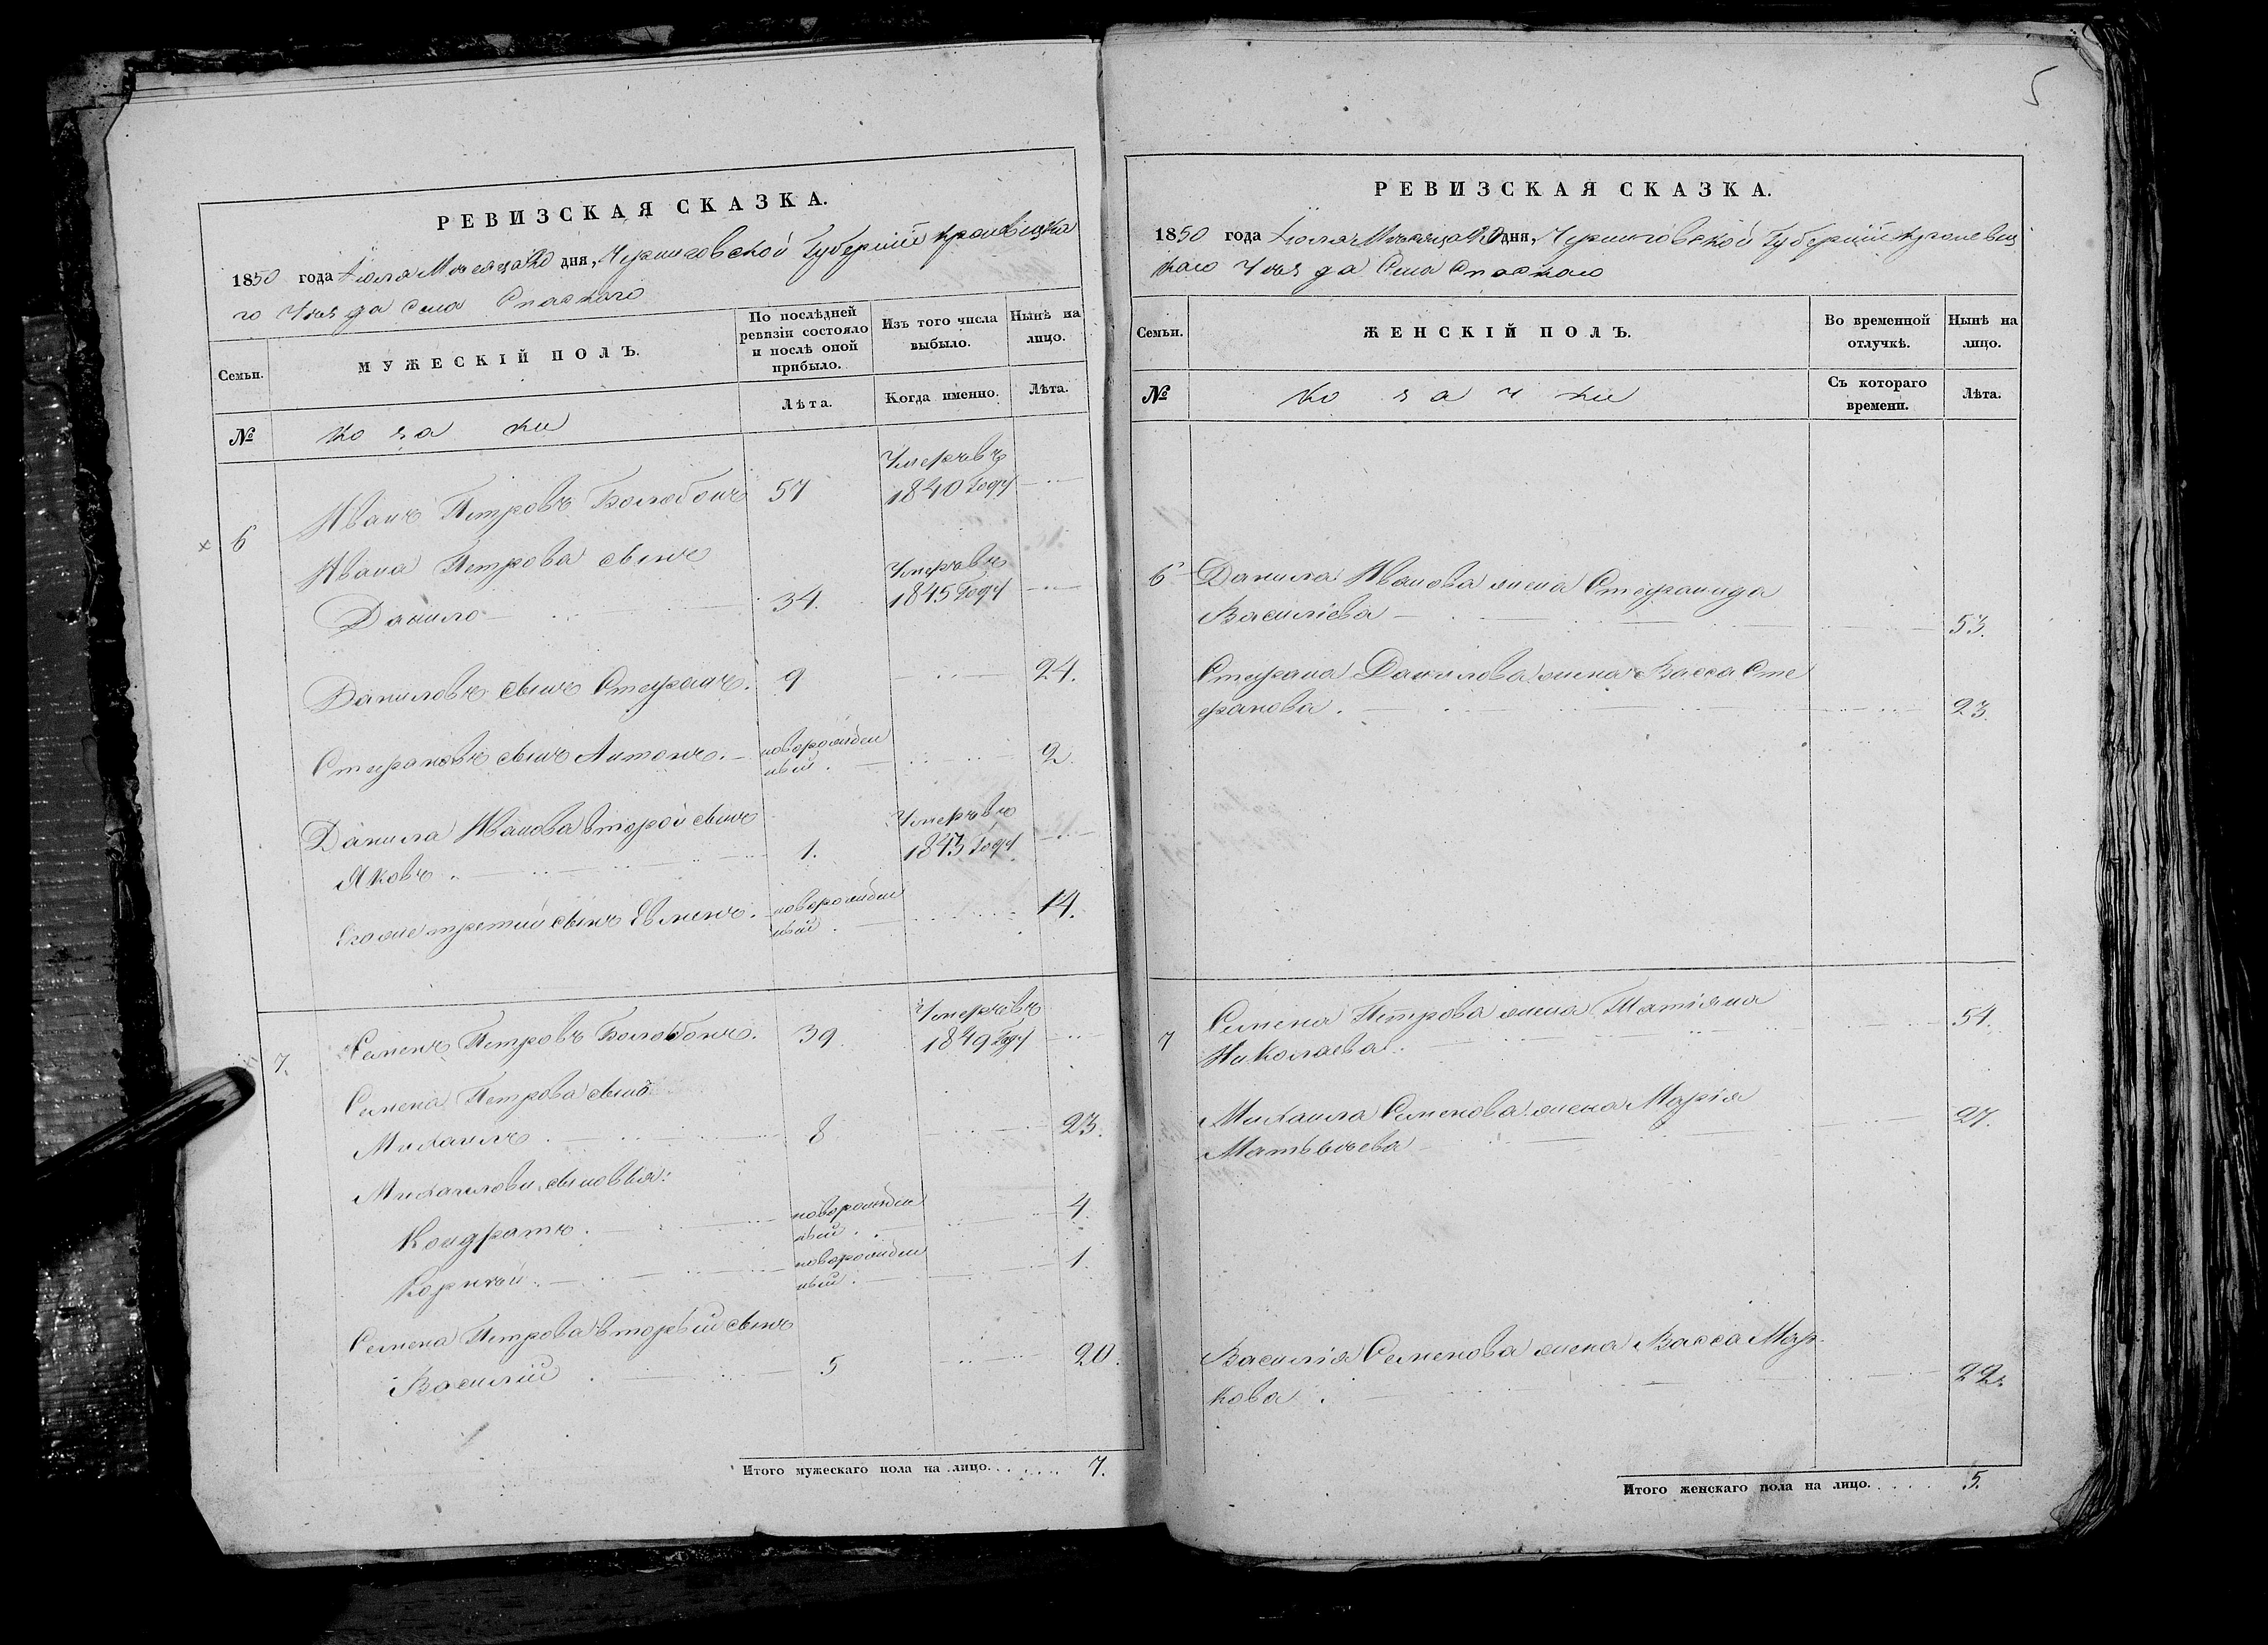 РЕВИЗСКАЯ СКАЗКА.
1850 года Іюля Мѣсяца 20 дня, Черниговской Губерніи Кролѣвецка
го Уѣзда Села Спаскаго
Семьи.
МУЖЕСКІЙ ПОЛЪ.
По послѣдней ревизіи состояло и послѣ оной прибыло.
Изъ того числа выбыло.
Нынѣ на лицо.
№
Козаки
Лѣта.
Когда именно.
Лѣта.
6
Иванъ Петровъ 57
Умеръ въ
1840 году
Ивана Петрова сынъ
Данило 34.
Умеръ въ
1845 году
Даниловъ сынъ Стефанъ. 9 24.
Стефановъ сынъ Антонъ. новорожден
ный. 2.
Данила Иванова второй сынъ
Яковъ. 1.
Умеръ въ
1843 году
Его же третий сынъ новорожден
ный 14.
7.
Семенъ Петровъ 39.
Умеръ въ
1849 году
Семена Петрова сынъ
Михаилъ. 8 23.
Михайловы сыновья:
Кондратъ. новорожден
ный. 4.
Корней. новорожден
ный. 1.
Семена Петрова вторый сынъ
Василій 5 20.
Итого мужескаго пола на лицо. 7.
5
РЕВИЗСКАЯ СКАЗКА.
1850 года Іюля Мѣсяца 20 дня, Черниговской Губерніи Кролевец
каго Уѣзда Села Спаскаго
Семьи.
ЖЕНСКІЙ ПОЛЪ.
Во временной отлучкѣ.
Нынѣ на лицо.
№
Козачки
Съ котораго времени.
Лѣта.
6
Данила Иванова жена Стефанида
Василіева 53.
Стефана Данилова жена Васса Сте
фанова. 23.
7
Семена Петрова жена Татіяна 54.
Николаева.
Михаила Семенова жена Марія 27.
Матвѣева
Василія Семенова жена Васса Мар
кова. 22.
Итого женскаго пола на лицо. 5.